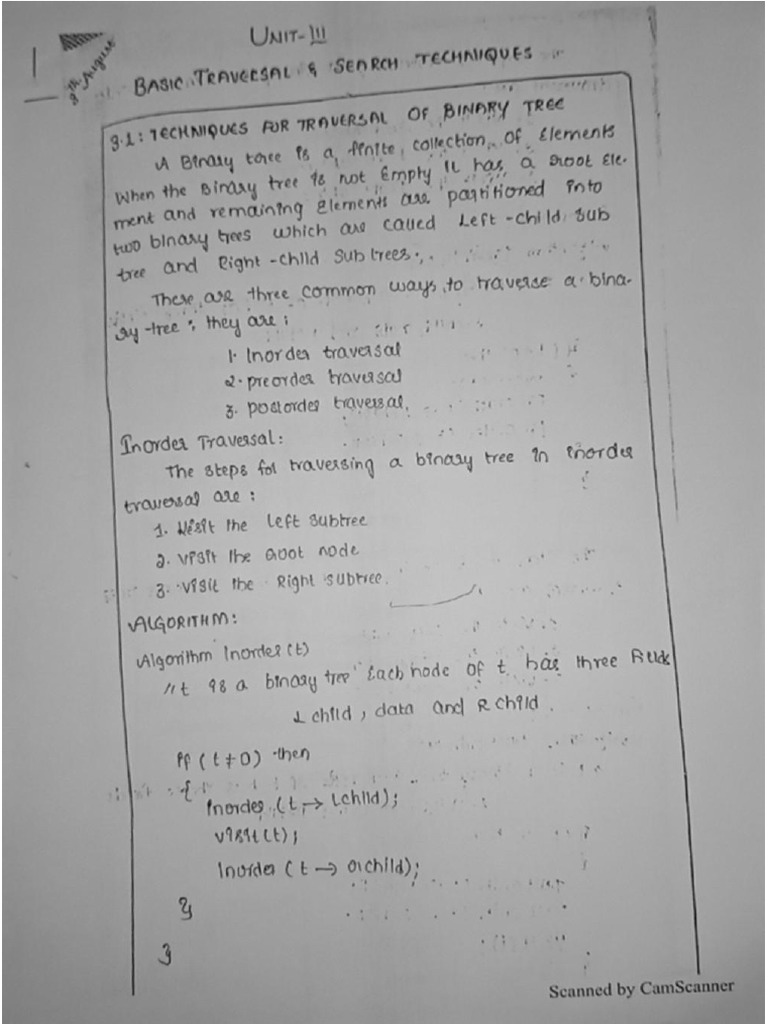 UNIT-III
9th August
BASIC TRAVERSAL & SEARCH TECHNIQUES
3.1: TECHNIQUES FOR TRAVERSAL OF BINARY TREE
A Binary tree is a finite collection of Elements
When the Binary tree is not Empty it has a root Ele-
ment and remaining Elements are partitioned into
two binary trees which are called Left-child sub
tree and Right-child Sub trees.
There are three common ways to traverse a bina-
ry-tree: they are:
1. Inorder traversal
2. preorder traversal
3. postorder traversal.
Inorder Traversal:
The steps for traversing a binary tree in inorder
traversal are:
1. Visit the Left subtree
2. visit the root node
3. visit the Right subtree.
ALGORITHM:
Algorithm Inorder(t)
//t is a binary tree Each node of t has three fields
Lchild, data and Rchild.
if (t≠0) then
{
Inorder (t → Lchild);
visit(t);
Inorder (t → rchild);
}
}
Scanned by CamScanner